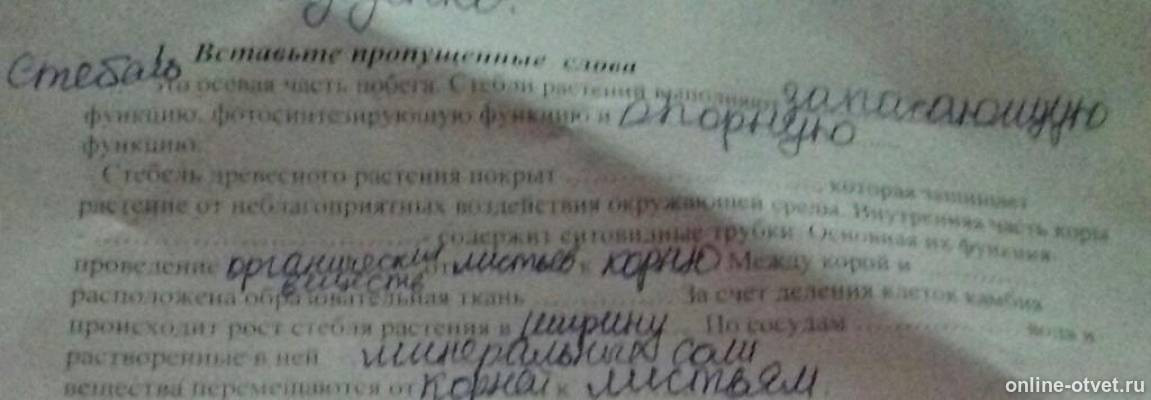 1. Вставьте пропущенные слова
Стебель это осевая часть побега. Стебли растения выполняют запасающую
функцию, фотосинтезирующую функцию и опорную
функцию.
Стебель древесного растения покрыт .................... которая защищает
растение от неблагоприятных воздействия окружающей среды. Внутренняя часть коры
- .................... - содержит ситовидные трубки. Основная их функция
проведение органических веществ от листьев к корню Между корой и ............
расположена образовательная ткань ............ За счет деления клеток камбия
происходит рост стебля растения в ширину По сосудам ............ вода и
растворенные в ней минеральных соли
вещества перемещаются от корна к листьям.
online-otvet.ru